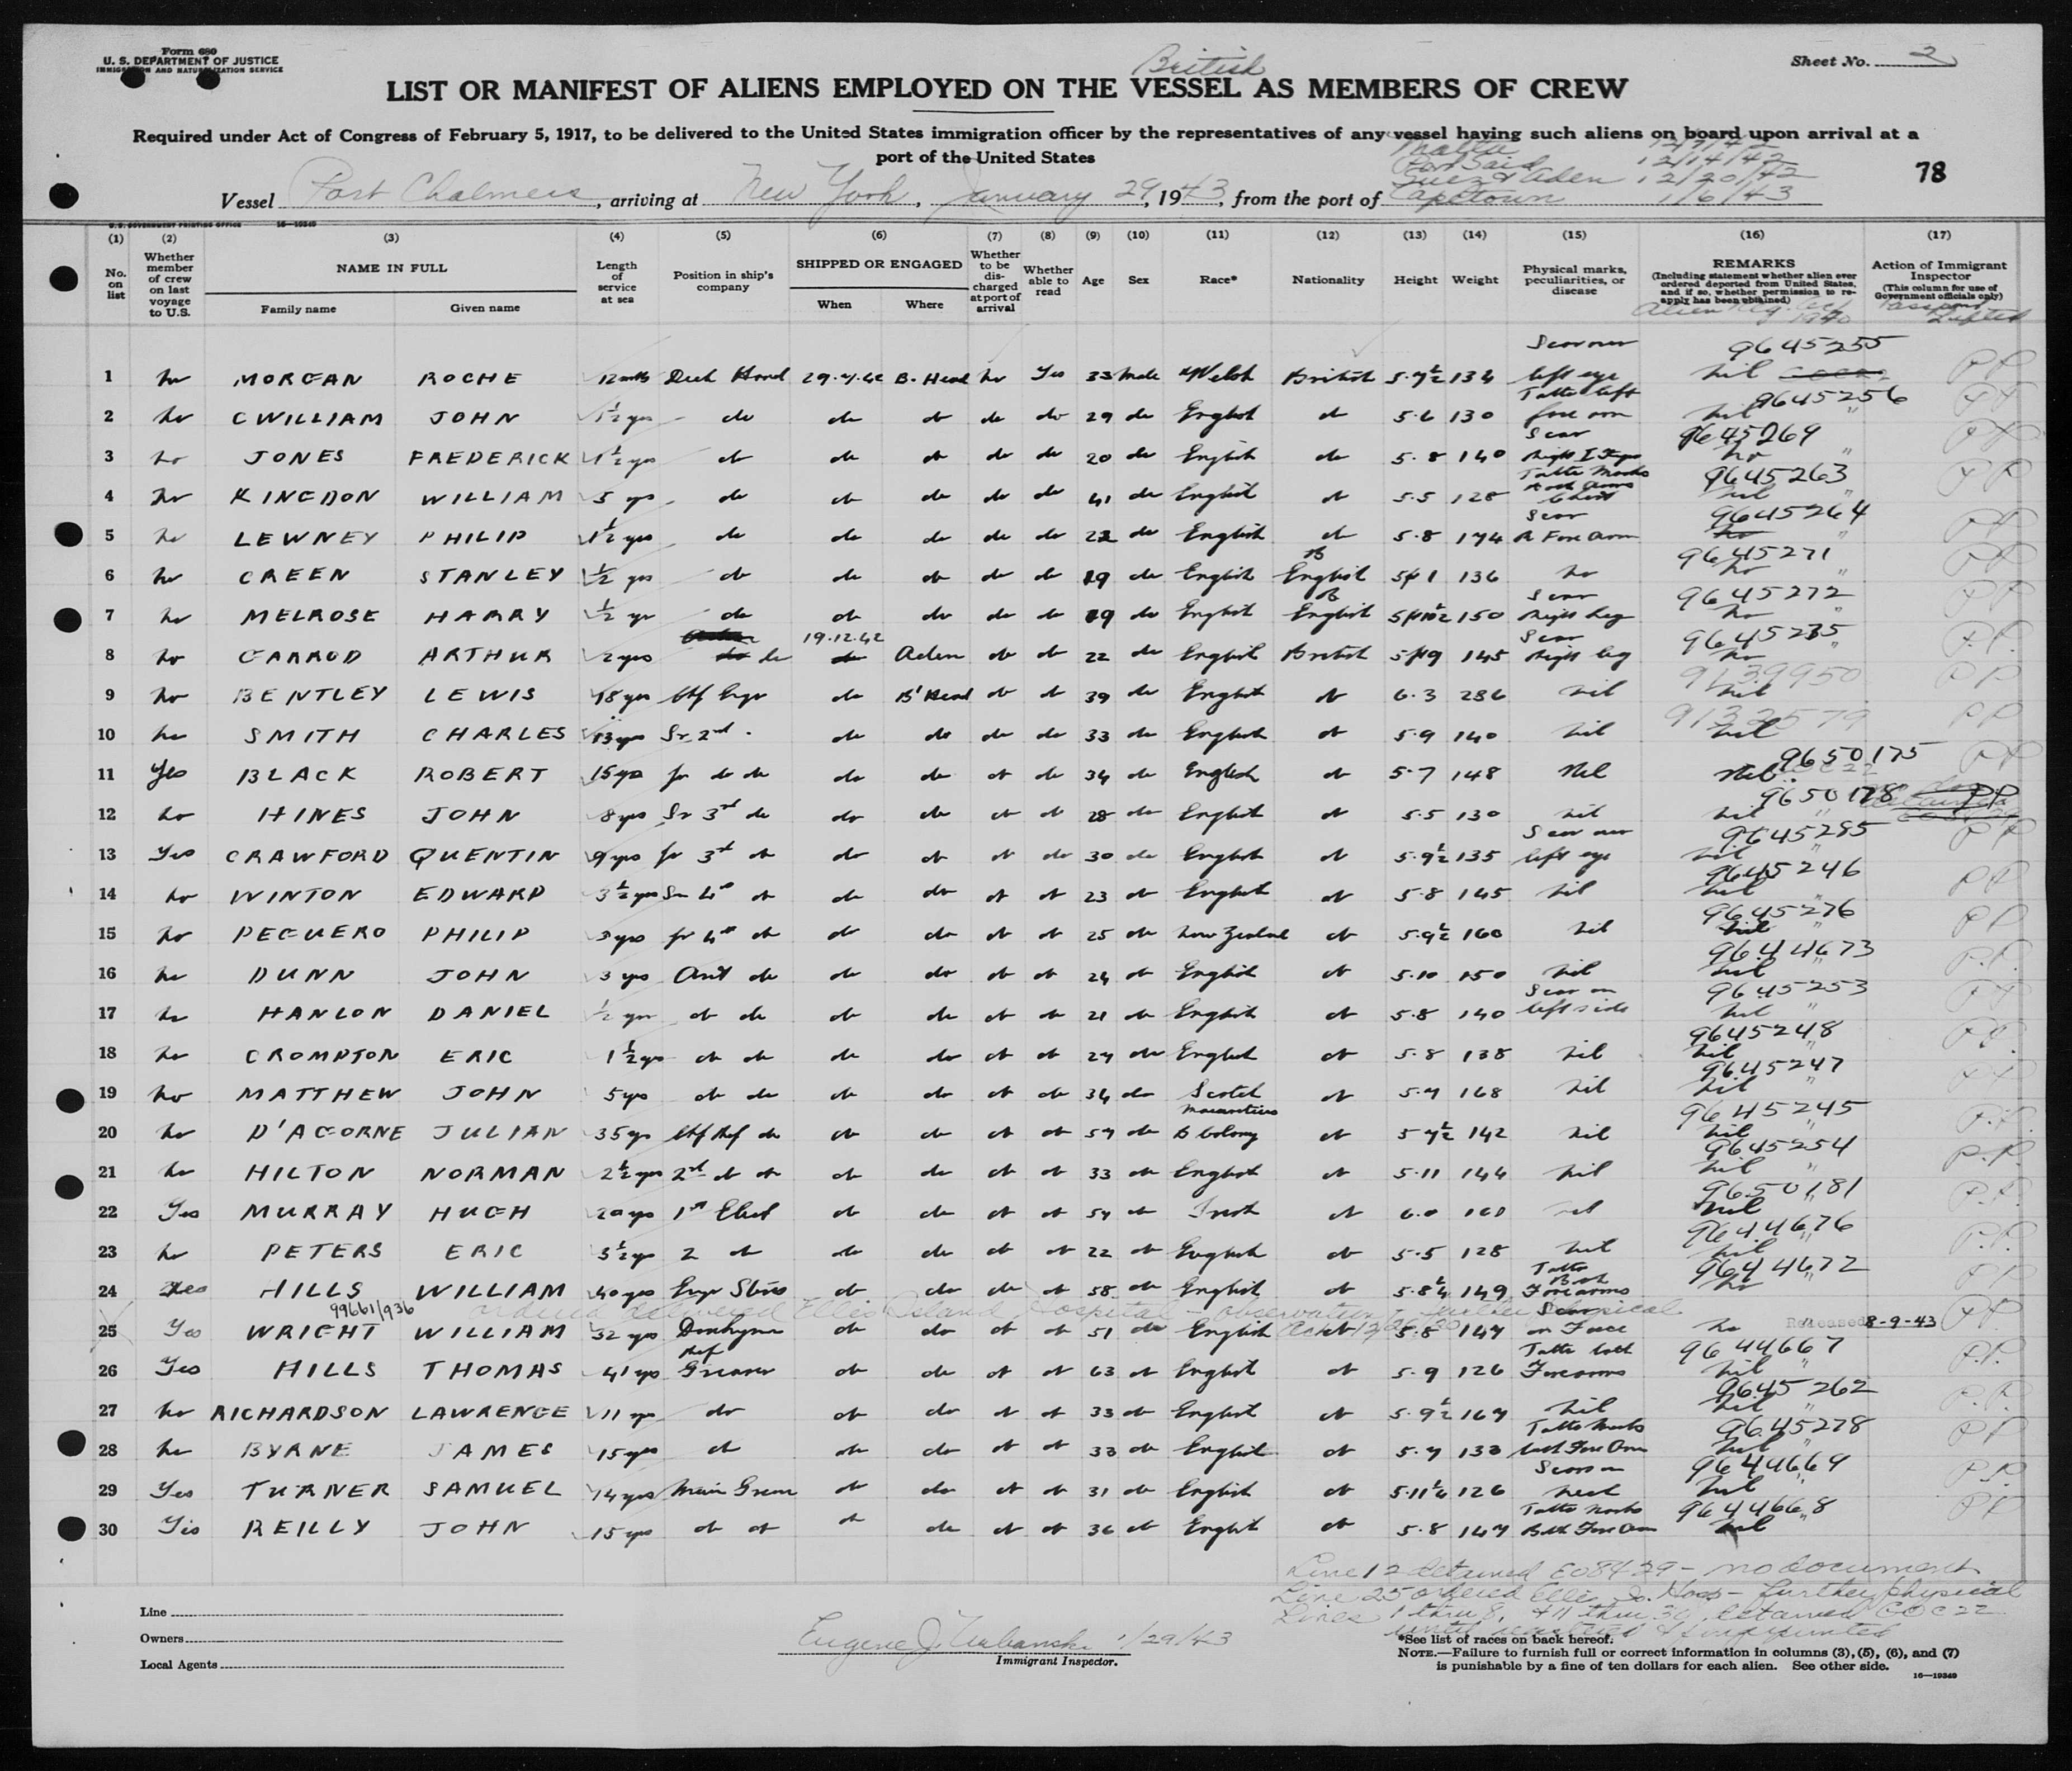 Form 680
U. S. DEPARTMENT OF JUSTICE
IMMIGRATION AND NATURALIZATION SERVICE
Sheet No. 2
British
LIST OR MANIFEST OF ALIENS EMPLOYED ON THE VESSEL AS MEMBERS OF CREW
Required under Act of Congress of February 5, 1917, to be delivered to the United States immigration officer by the representatives of any vessel having such aliens on board upon arrival at a
port of the United States
78
Malta 12/7/42
Port Said 12/14/42
Suez & Aden 12/20/42
Vessel Port Chalmers, arriving at New York, January 29, 1943, from the port of Capetown 1/6/43
U. S. GOVERNMENT PRINTING OFFICE 16—19349
(1) (2) (3) (4) (5) (6) (7) (8) (9) (10) (11) (12) (13) (14) (15) (16) (17)
No. on list
Whether member of crew on last voyage to U.S.
NAME IN FULL
Family name Given name
Length of service at sea
Position in ship's company
SHIPPED OR ENGAGED
When Where
Whether to be discharged at port of arrival
Whether able to read
Age
Sex
Race*
Nationality
Height
Weight
Physical marks, peculiarities, or disease
REMARKS
(Including statement whether alien ever ordered deported from United States, and if so, whether permission to re-apply has been obtained)
Action of Immigrant Inspector
(This column for use of Government officials only)
Alien Reg. Act 1940
Passport Lifted
1 no MORGAN ROCHE 12 mths Deck Hand 29.7.42 B. Head no Yes 33 male Welsh British 5.7½ 134 Scar over left eye 9645255 nil PP
2 no CWILLIAM JOHN 1½ yrs do do do do do 29 do English do 5.6 130 Tattoo left fore arm 9645256 nil PP
3 no JONES FREDERICK 1½ yrs do do do do do 20 do English do 5.8 140 Scar 9645269 no PP
4 no KINGDON WILLIAM 5 yrs do do do do do 41 do English do 5.5 128 Tattoo Marks Both arms Chest 9645263 nil PP
5 no LEWNEY PHILIP 1½ yrs do do do do do 22 do English do 5.8 174 Scar R Fore arm 9645264 no PP
6 no GREEN STANLEY ½ yrs do do do do do 19 do English English 136 no 9645271 no PP
7 no MELROSE HARRY ½ yr do do do do do 19 do English English 150 Scar Right Leg 9645272 no PP
8 no GARROD ARTHUR 2 yrs do 19.12.42 Aden do do 22 do English British 145 Scar Right leg 9645235 no P.P.
9 no BENTLEY LEWIS 18 yrs Chf Engr do B'Head do do 39 do English do 6.3 286 nil 9139950 nil PP
10 no SMITH CHARLES 13 yrs Sr 2nd do do do do 33 do English do 5.9 140 nil 9132579 nil PP
11 Yes BLACK ROBERT 15 yrs Jr do do do do do do 34 do English do 5.7 148 Nil 9650175 Nil PP
12 no HINES JOHN 8 yrs Sr 3rd do do do do do 28 do English do 5.5 130 nil 9650178 nil PP
13 Yes CRAWFORD QUENTIN 9 yrs Jr 3rd do do do do do 30 do English do 5.9½ 135 Scar over left eye 9645285 nil PP
14 no WINTON EDWARD 3½ yrs Sr 4th do do do do do 23 do English do 5.8 145 nil 9645246 nil PP
15 no PEGUERO PHILIP 3 yrs Jr 4th do do do do do 25 do New Zealand do 5.9½ 160 nil 9645276 nil PP
16 no DUNN JOHN 3 yrs Asst do do do do do 24 do English do 5.10 150 nil 9644673 nil P.P.
17 no HANLON DANIEL ½ yrs do do do do do do 21 do English do 5.8 140 Scar on left side 9645253 nil PP
18 no CROMPTON ERIC 1½ yrs do do do do do do 27 do English do 5.8 138 nil 9645248 nil PP
19 no MATTHEW JOHN 5 yrs do do do do do do 34 do Scotch do 5.7 168 nil 9645247 nil PP
20 no D'AGORNE JULIAN 35 yrs Chf Ref do do do do do 57 do Mauritius B Colony do 5.7½ 142 nil 9645245 nil P.P.
21 no HILTON NORMAN 2½ yrs 2nd do do do do do do 33 do English do 5.11 144 nil 9645254 nil P.P.
22 Yes MURRAY HUGH 20 yrs 1st Elect do do do do 54 do Irish do 6.0 nil 9650181 nil P.P.
23 no PETERS ERIC 3½ yr 2 do do do do do 22 do English do 5.5 128 nil 9644676 nil P.P.
24 Yes HILLS WILLIAM 40 yrs Engr Stores do do do do 58 do English do 149 Tattoo Both Forearms 9644672 no PP
99661/936 ordered delivered Ellis Island Hospital observation & further physical
25 Yes WRIGHT WILLIAM 32 yrs Donkeyman do do do do 51 do English 5.8 147 Scar on Face no Released 8-9-43 PP
26 Yes HILLS THOMAS 41 yrs Ref Greaser do do do do 63 do English do 5.9 126 Tattoo both Forearms 9644667 nil P.P.
27 no RICHARDSON LAWRENCE 11 yrs do do do do do 33 do English do 5.9½ 167 nil 9645262 nil P.P.
28 no BYRNE JAMES 15 yrs do do do do do 33 do English do 5.7 133 Tattoo Marks both Fore Arm 9645278 nil PP
29 Yes TURNER SAMUEL 14 yrs Main Greaser do do do do 31 do English do 126 Scars on neck 9644669 nil P.P.
30 Yes REILLY JOHN 15 yrs do do do do do do 36 do English do 5.8 147 Tattoo Marks Both Fore Arm 9644668 nil PP
Line 12 detained E08429 - no document
Line 25 ordered Ellis Is. Hosp - further physical
Lines 1 thru 8, & 11 thru 30 detained
until registered & fingerprinted
Line
Owners
Local Agents
Eugene J. Urbanski 1/29/43
Immigrant Inspector.
*See list of races on back hereof.
NOTE.—Failure to furnish full or correct information in columns (3), (5), (6), and (7)
is punishable by a fine of ten dollars for each alien. See other side.
16—19349